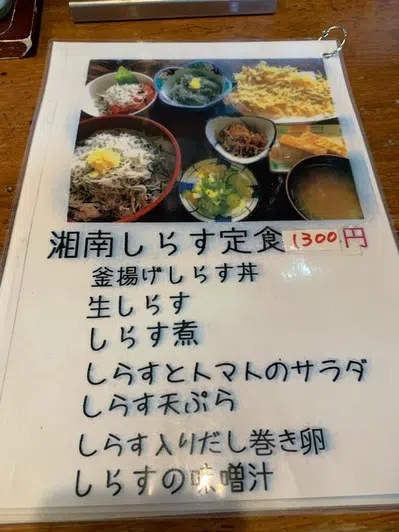 湘南しらす定食 1300円
釜揚げしらす丼
生しらす
しらす煮
しらすとトマトのサラダ
しらす天ぷら
しらす入りだし巻き卵
しらすの味噌汁